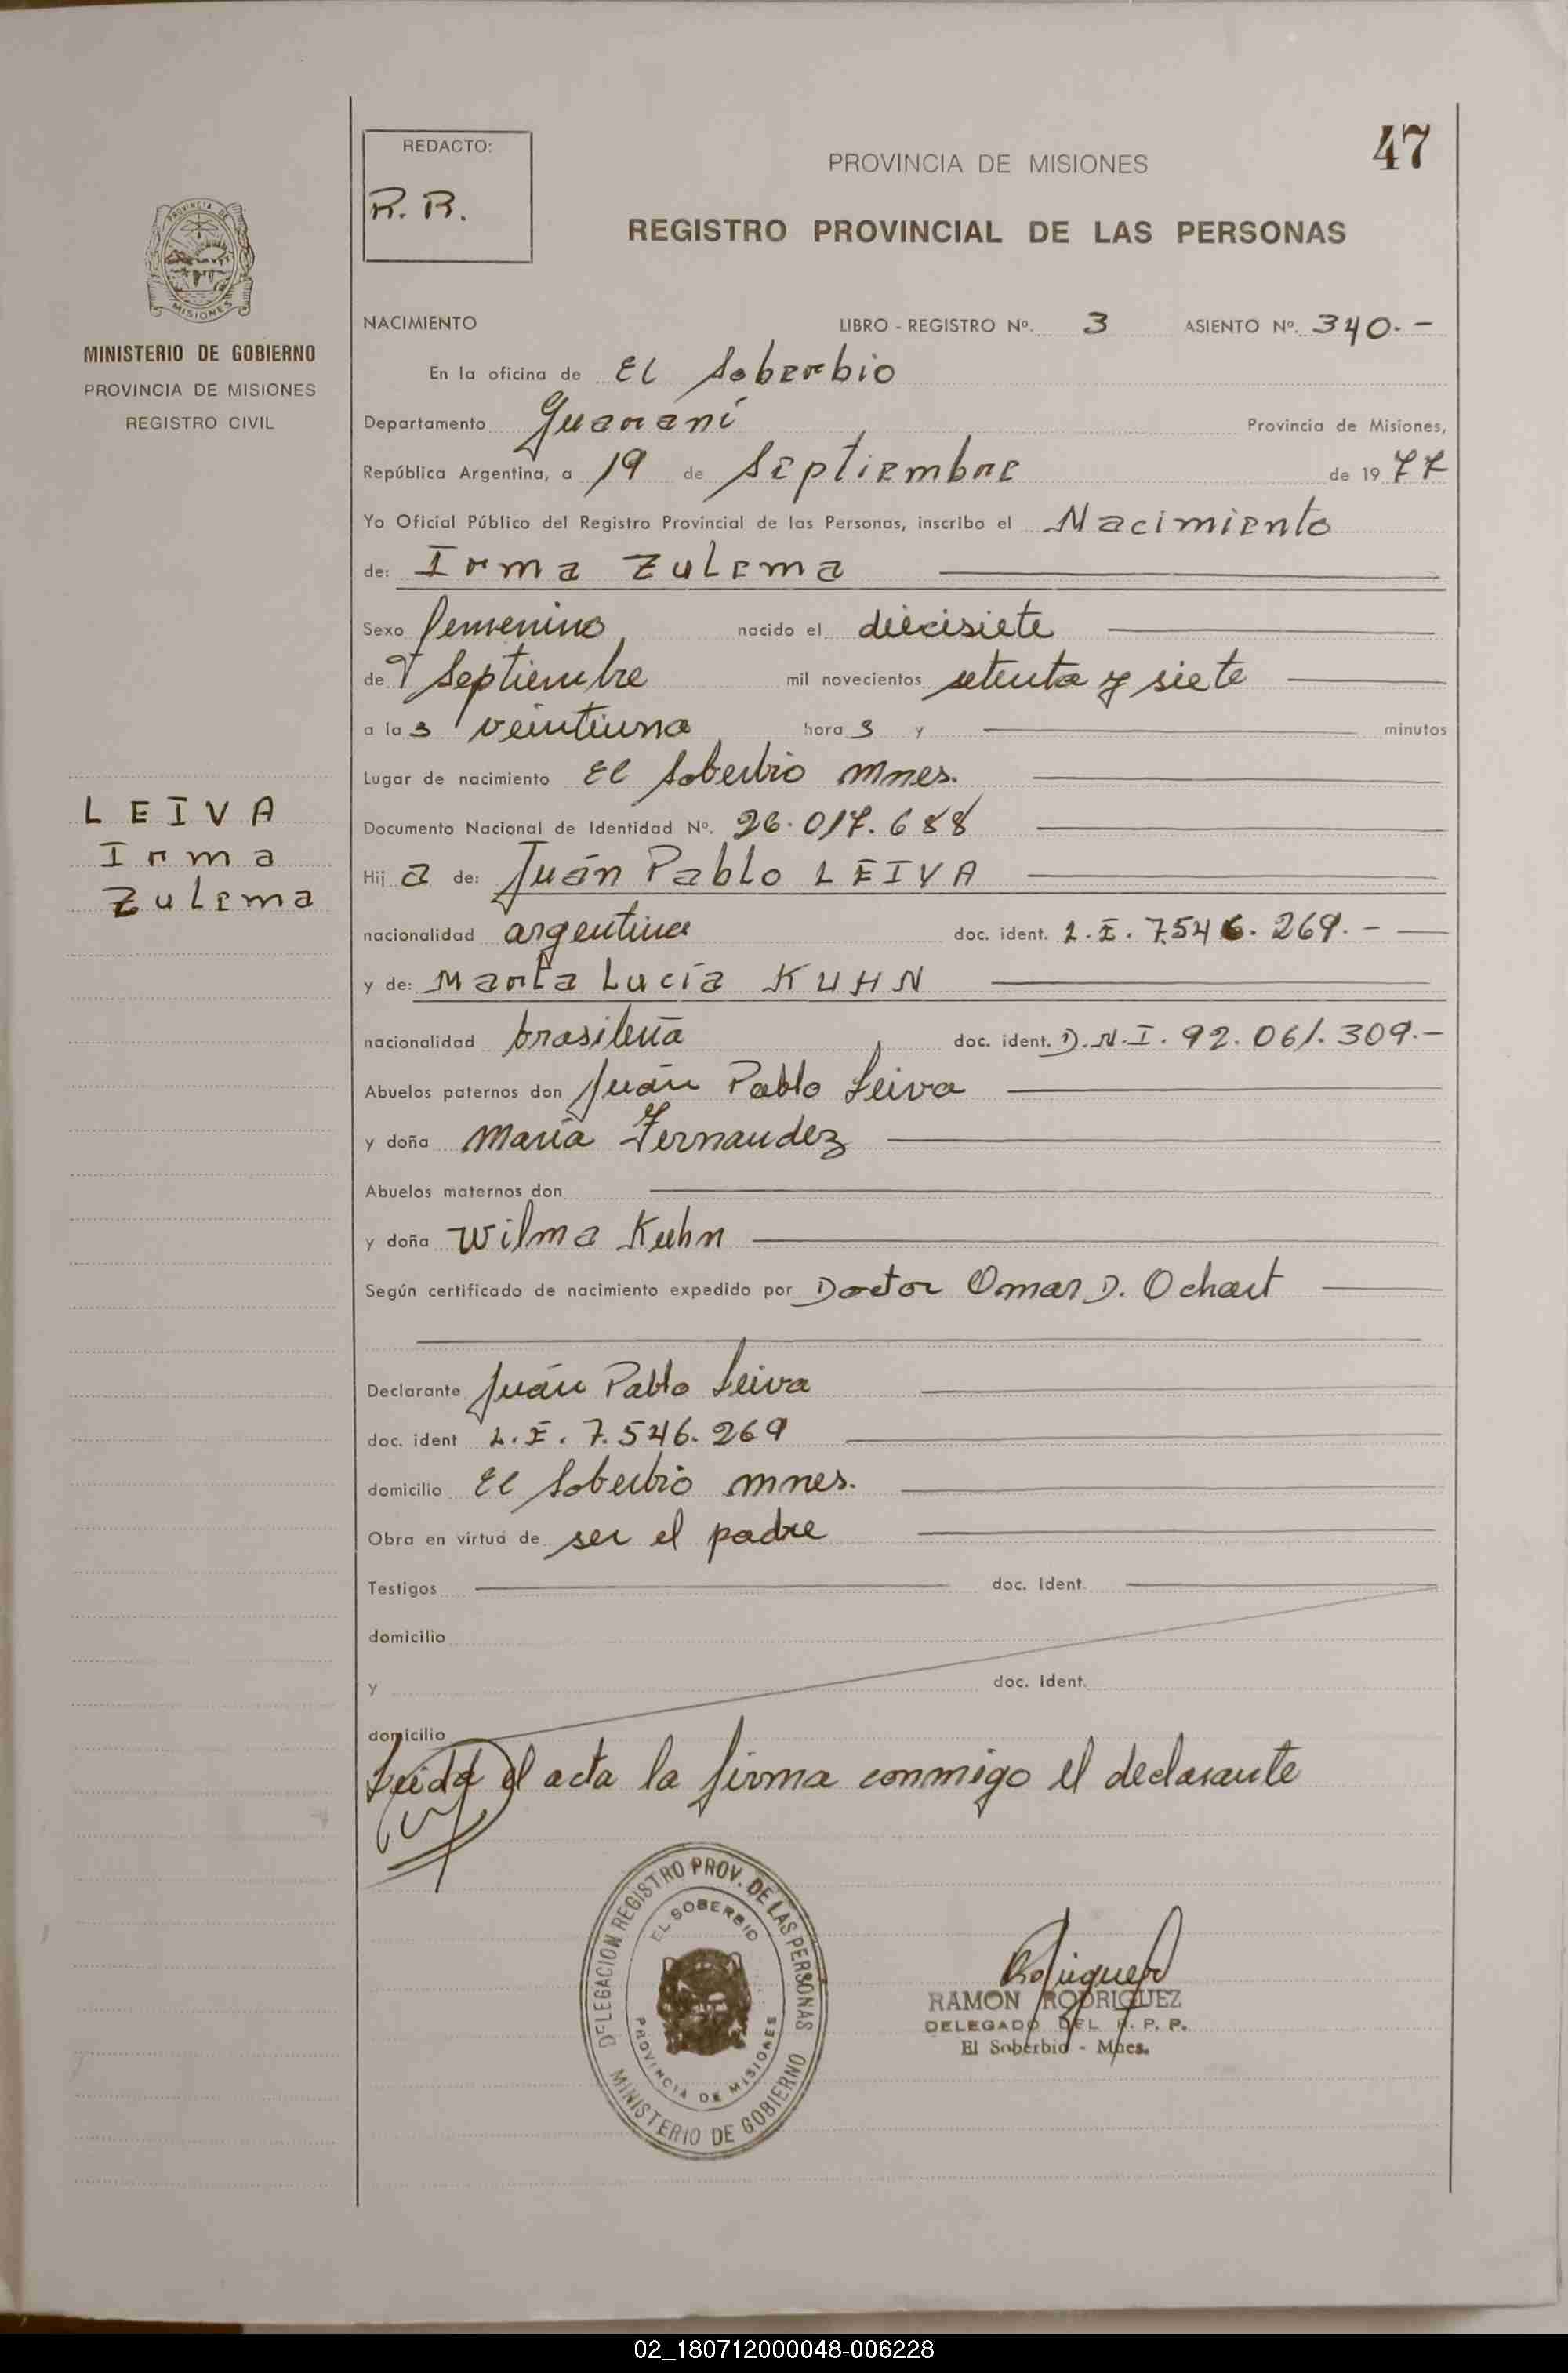 47
REDACTO:
R. R.
PROVINCIA DE MISIONES
REGISTRO PROVINCIAL DE LAS PERSONAS
PROVINCIA DE
MISIONES
MINISTERIO DE GOBIERNO
PROVINCIA DE MISIONES
REGISTRO CIVIL
LEIVA
Irma
Zulema
NACIMIENTO LIBRO - REGISTRO Nº. 3 ASIENTO Nº. 340.-
En la oficina de El Soberbio
Departamento Guaraní Provincia de Misiones,
República Argentina, a 19 de Septiembre de 1977
Yo Oficial Público del Registro Provincial de las Personas, inscribo el Nacimiento
de: Irma Zulema
Sexo femenino nacido el diecisiete
de Septiembre mil novecientos setenta y siete
a las veintiuna horas y minutos
Lugar de nacimiento El Soberbio Mnes.
Documento Nacional de Identidad Nº. 26.017.688
Hija de: Juán Pablo LEIVA
nacionalidad argentina doc. ident. L.E. 7.546.269.-
y de: Marta Lucía KUHN
nacionalidad brasileña doc. ident. D.N.I. 92.061.309.-
Abuelos paternos don Juán Pablo Leiva
y doña María Fernandez
Abuelos maternos don
y doña Wilma Kuhn
Según certificado de nacimiento expedido por Doctor Omar D. Ochart
Declarante Juán Pablo Leiva
doc. ident L.E. 7.546.269
domicilio El Soberbio Mnes.
Obra en virtud de ser el padre
Testigos doc. Ident.
domicilio
y doc. Ident.
domicilio
Leida el acta la firma conmigo el declarante
DELEGACION REGISTRO PROV. DE LAS PERSONAS
EL SOBERBIO
PROVINCIA DE MISIONES
MINISTERIO DE GOBIERNO
RAMON RODRIGUEZ
DELEGADO DEL R. P. P.
El Soberbio - Mnes.
02_180712000048-006228